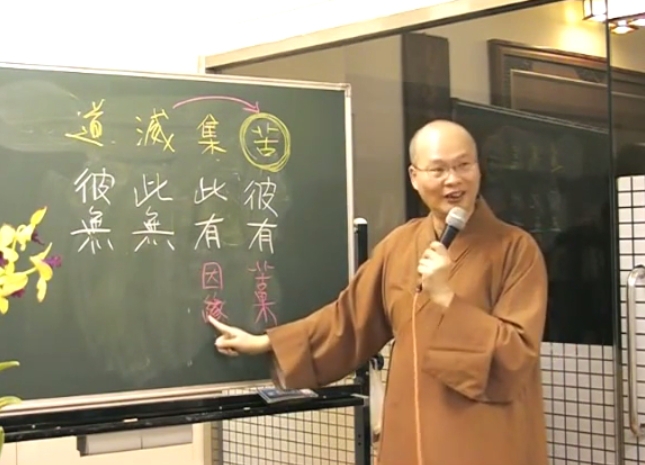 苦彼有苦菓
集此有因緣
滅此無
道彼無